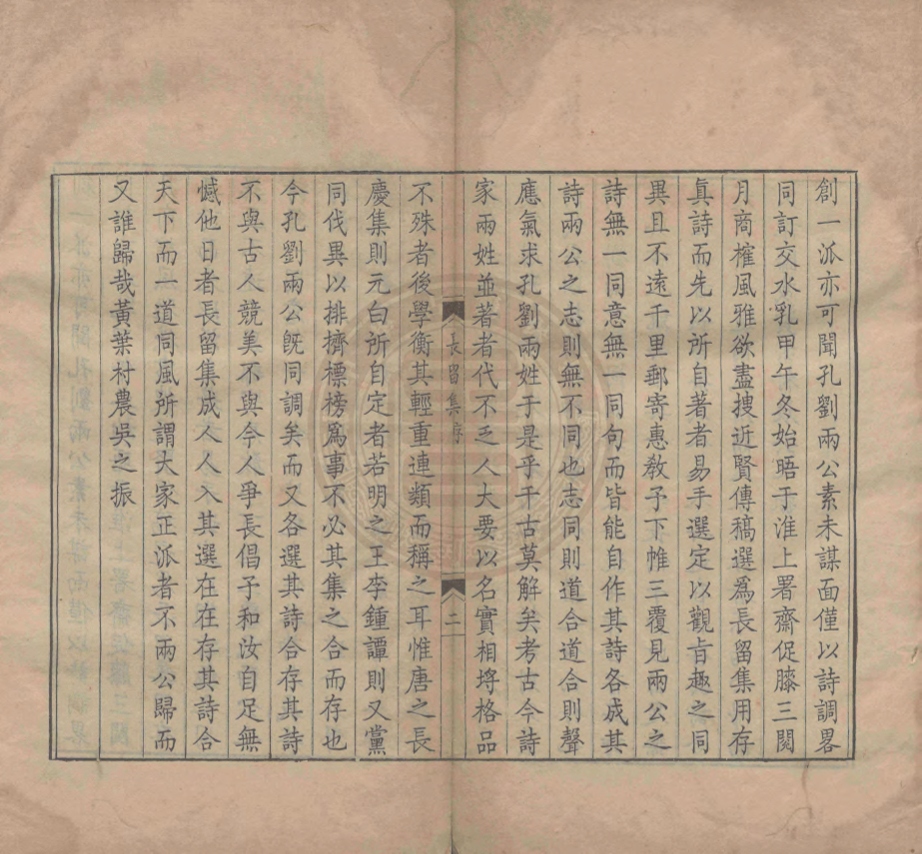 創一派亦可聞孔劉兩公素未謀面僅以詩調畧
同訂交水乳甲午冬始晤于淮上署齋促膝三閱
月商榷風雅欲盡搜近賢傳稿選爲長留集用存
眞詩而先以所自著者易手選定以觀旨趣之同
異且不遠千里郵寄惠敎予下帷三覆見兩公之
詩無一同意無一同句而皆能自作其詩各成其
詩兩公之志則無不同也志同則道合道合則聲
應氣求孔劉兩姓于是乎千古莫解矣考古今詩
家兩姓並著者代不乏人大要以名實相埒格品
長留集序
二
不殊者後學衡其輕重連類而稱之耳惟唐之長
慶集則元白所自定者若明之王李鍾譚則又黨
同伐異以排擠標榜爲事不必其集之合而存也
今孔劉兩公旣同調矣而又各選其詩合存其詩
不與古人競美不與今人爭長倡予和汝自足無
憾他日者長留集成人人入其選在在存其詩合
天下而一道同風所謂大家正派者不兩公歸而
又誰歸哉黃葉村農吳之振